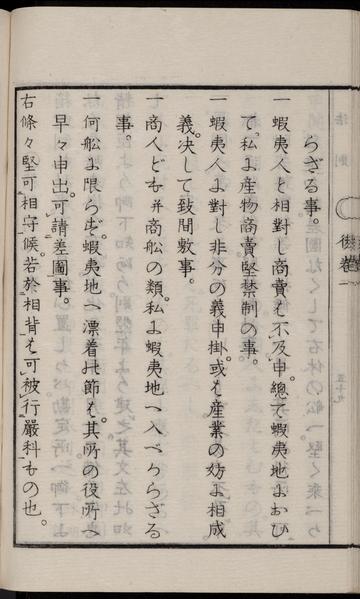 らざる事。
一 蝦夷人と相對し商賣も不及申。總て蝦夷地におひ
て。私に産物商賣堅禁制の事。
一 蝦夷人に對し非分の義申掛。或も産業の妨に相成
義。决して致間敷事。
一 商人ども并商船の類。私に蝦夷地へ入べからざる
事。
一 何船に限らず。蝦夷地へ漂着の節も。其所の役所へ
早々申出。可請差圖事。
右條々堅可相守候。若於相背も可被行嚴科もの也。
後巻一